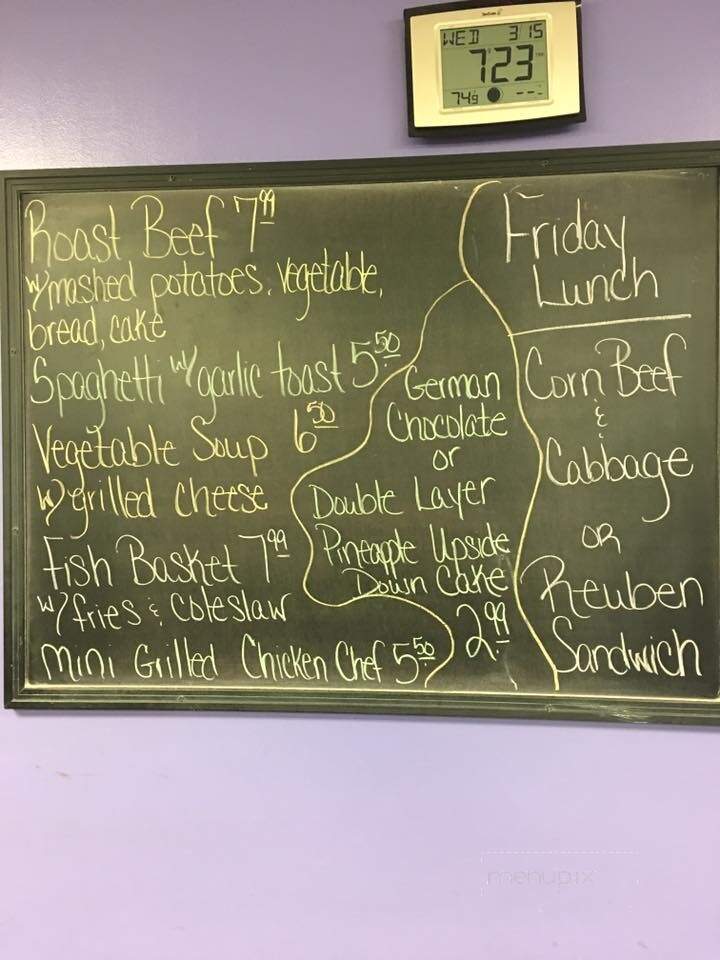 WED 3 15
7:23
74.9 ---
Roast Beef 7.99
w/mashed potatoes, vegetable,
bread, cake
Spaghetti w/garlic toast 5.50
Vegetable Soup 6.50
w/grilled cheese
Fish Basket 7.99
w/fries & coleslaw
Mini Grilled Chicken Chef 5.50
German
Chocolate
or
Double Layer
Pineapple Upside
Down Cake
2.99
Friday
Lunch
Corn Beef
&
Cabbage
OR
Reuben
Sandwich
menupix